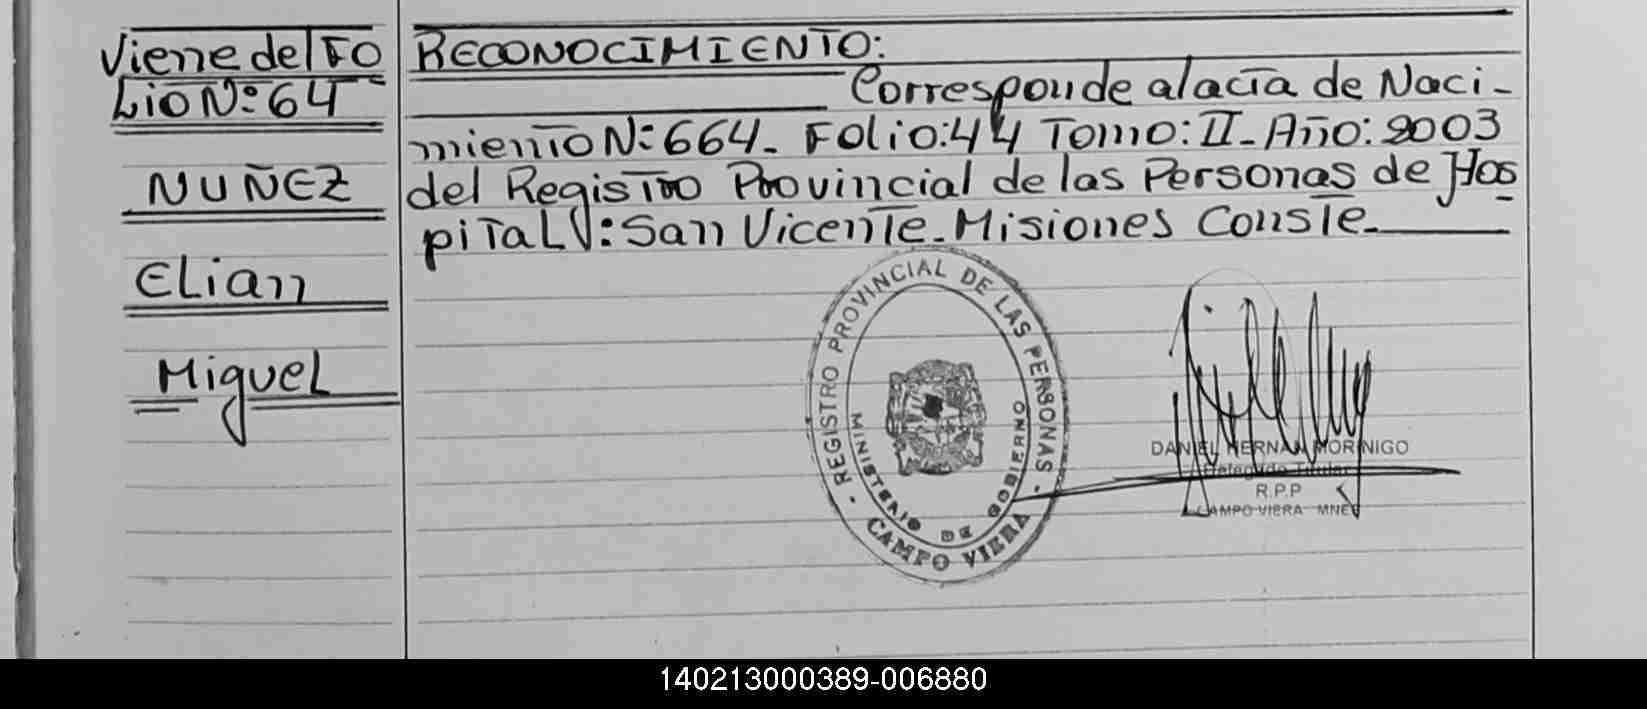 Viene del FO
LioNº:64
NUÑEZ
ELian
MigueL
RECONOCIMIENTO:
Corresponde al acta de Naci-
miento N:664. Folio:44 Tomo:II-Año:2003
del Registro Provincial de las Personas de Hos
pital V:San Vicente-Misiones Conste.
- REGISTRO PROVINCIAL DE LAS PERSONAS -
MINISTERIO DE GOBIERNO
CAMPO VIERA
DANIEL HERNAN MORINIGO
Delegado Titular
R.P.P
CAMPO VIERA MNES
140213000389-006880